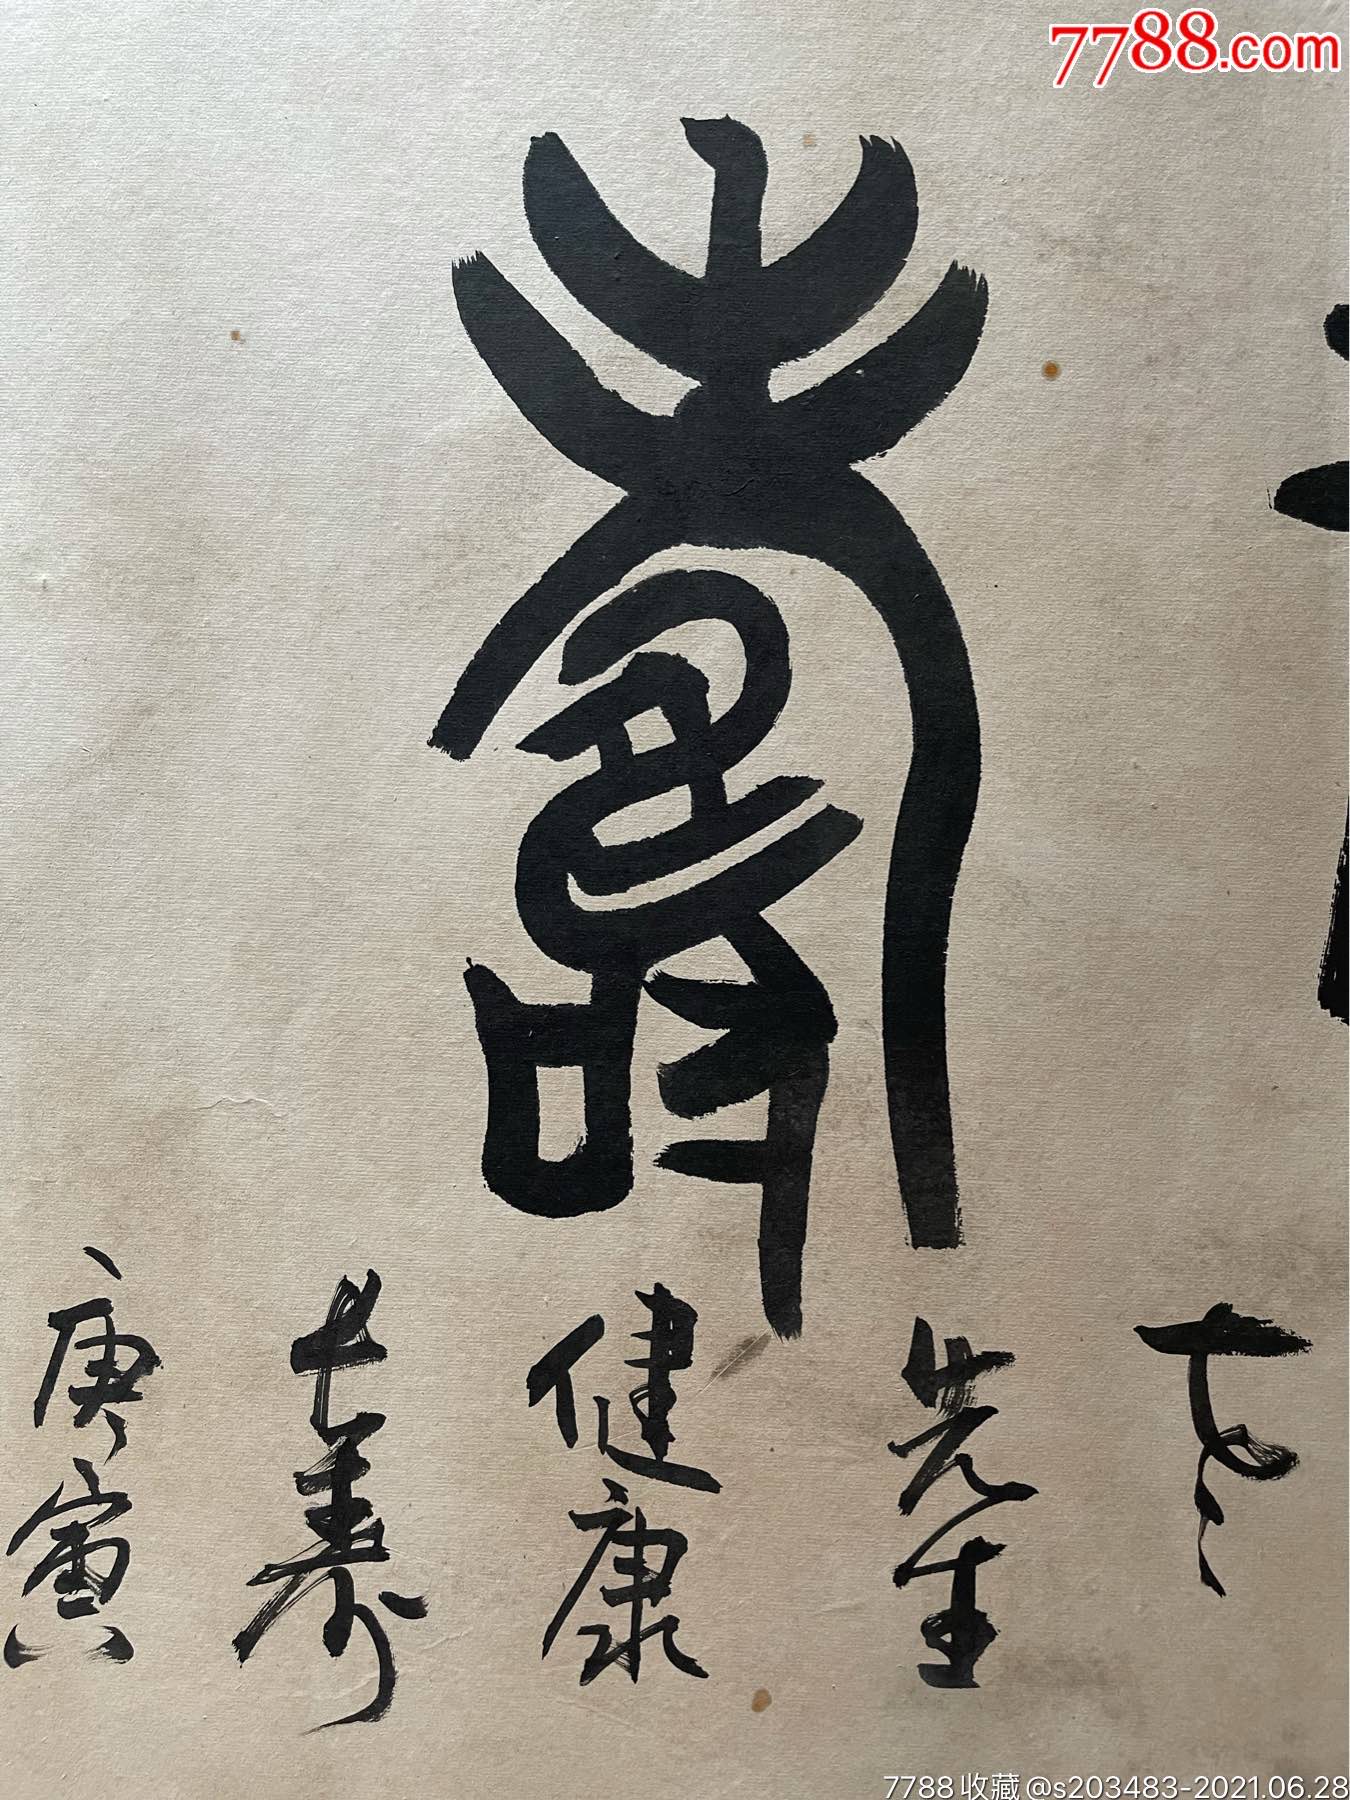 7788.com
壽
先生
健康
长寿
庚寅
7788收藏@s203483-2021.06.28